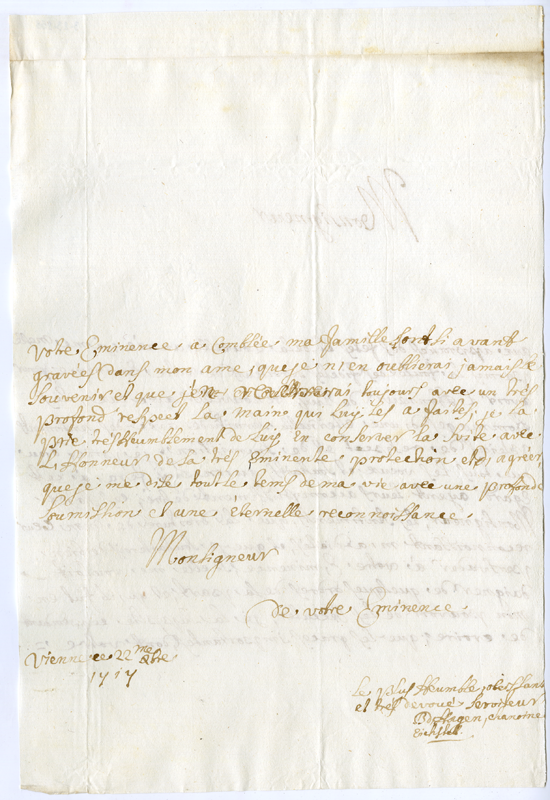 votre Eminence a Comblée ma famille sont si avant
gravées dans mon ame, que je n'en oublierai jamais le
souvenir et que j'en toujours avec un très
profond respect la main qui luy les a faites, je la
prie très Heumblement de luy en conserver la suite avec
L'Honneur de la très Eminente protection et d'agréer
que je me dise tout le tems de ma vie avec une profonde
soumission et une éternelle reconnoissance.
Monsigneur
de votre Eminence
Vienne ce 22me
1717
Le plus Heumble, obeissant
et très devoué serviteur
chanoine